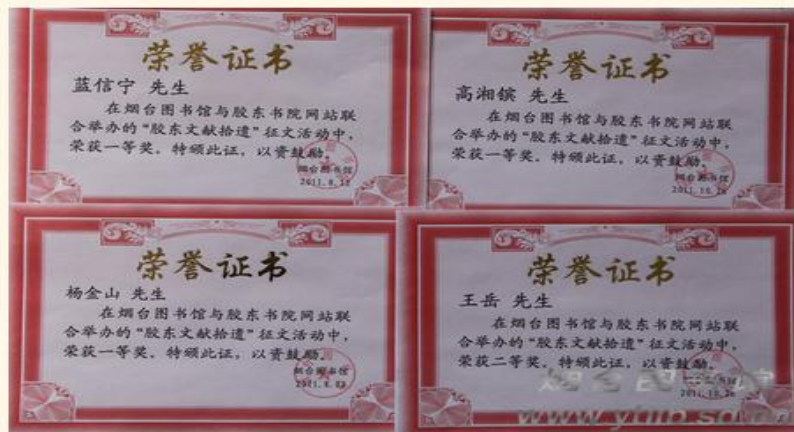 荣誉证书
蓝信宁 先生
在烟台图书馆与胶东书院网站联
合举办的“胶东文献拾遗”征文活动中,
荣获一等奖。特颁此证,以资鼓励。
烟台图书馆
荣誉证书
高湘镔 先生
在烟台图书馆与胶东书院网站联
合举办的“胶东文献拾遗”征文活动中,
荣获一等奖。特颁此证,以资鼓励。
烟台图书馆
荣誉证书
杨金山 先生
在烟台图书馆与胶东书院网站联
合举办的“胶东文献拾遗”征文活动中,
荣获一等奖。特颁此证,以资鼓励。
烟台图书馆
荣誉证书
王岳 先生
在烟台图书馆与胶东书院网站联
合举办的“胶东文献拾遗”征文活动中,
荣获二等奖。特颁此证,以资鼓励。